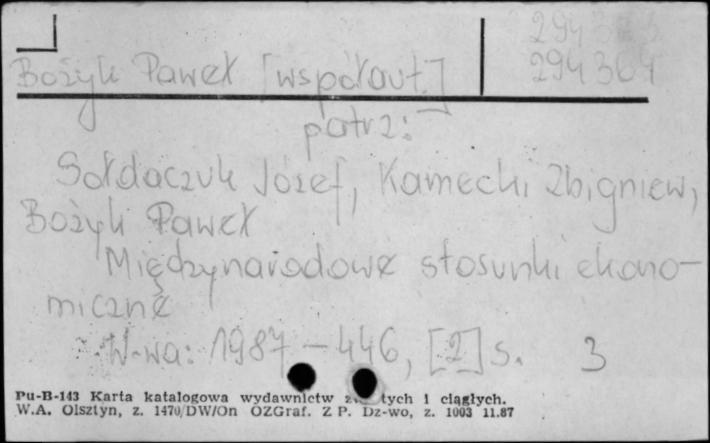 294 3
Bożyk Paweł [współaut.] 294 364
patrz:
Sołdaczuk Józef, Kamecki Zbigniew,
Bożyk Paweł
Międzynarodowe stosunki ekono-
miczne
W-wa: 1987 – 446, [2] s. 3
Pu-B-143 Karta katalogowa wydawnictw tych i ciągłych.
W.A. Olsztyn, z. 1470/DW/On OZGraf. Z P. Dz-wo, z. 1003 11.87